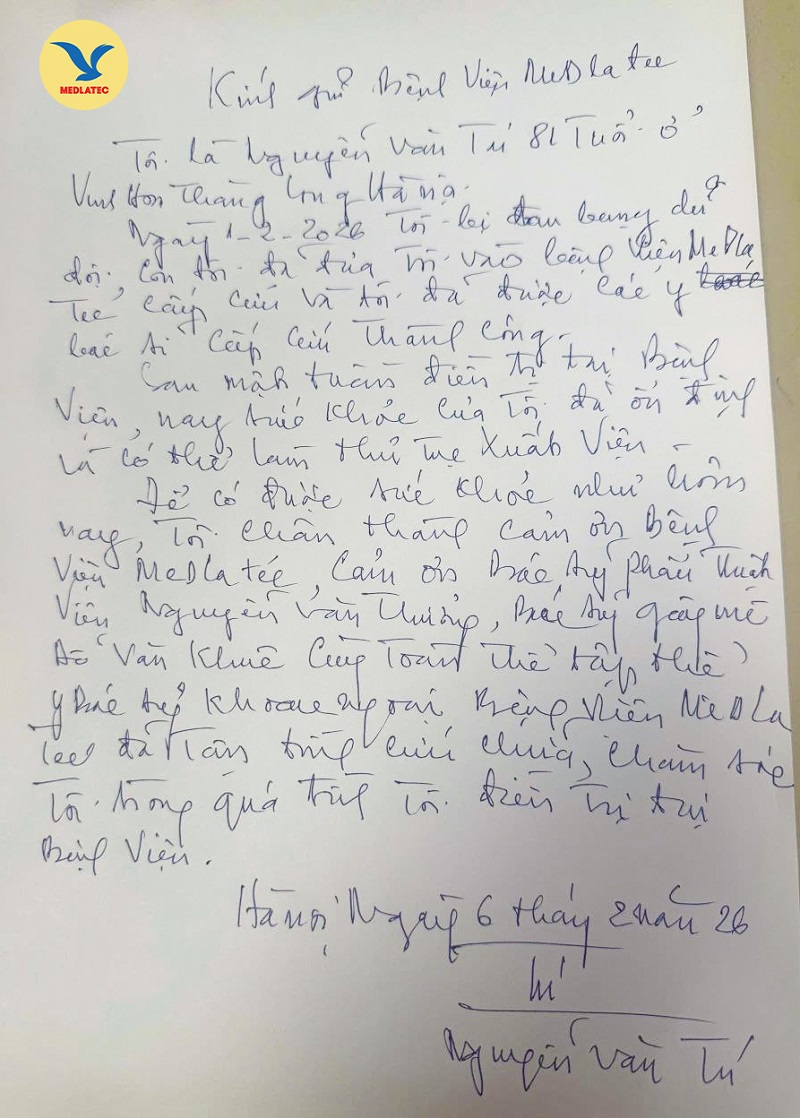 MEDLATEC
Kính gửi Bệnh Viện MeDlatec
Tôi là Nguyễn Văn Tú 81 Tuổi ở
Thăng Long Hà Nội.
Ngày 1-2-2026 Tôi bị đau bụng dữ
dội, con tôi đã đưa Tôi vào bệnh Viện MeDla
Tec cấp cứu và tôi đã được các y
bác sĩ cấp cứu Thành Công.
Sau một tuần điều trị tại Bệnh
Viện, nay sức khỏe của Tôi đã ổn định
và có thể làm thủ tục Xuất Viện -
Để có được sức khỏe như hôm
nay, Tôi chân thành cảm ơn Bệnh
Viện MeDlatec, Cảm ơn Bác sỹ phẫu thuật
Viên Nguyễn Văn Thưởng, Bác sỹ gây mê
Đỗ Văn Khuê Cùng Toàn Thể tập thể
y Bác sỹ khoa ngoại Bệnh Viện MeDLa
Tec đã Tận tình cứu chữa, Chăm sóc
Tôi trong quá trình Tôi điều Trị tại
Bệnh Viện.
Hà nội Ngày 6 tháng 2 năm 26
Tú
Nguyễn Văn Tú